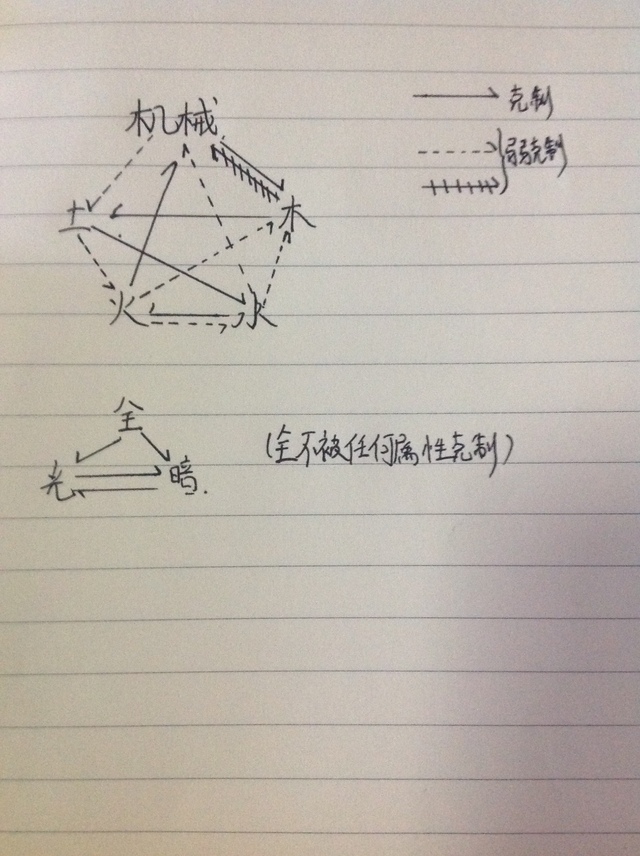 机械
克制
弱克制
土
木
火
水
全
(全不被任何属性克制)
光
暗.